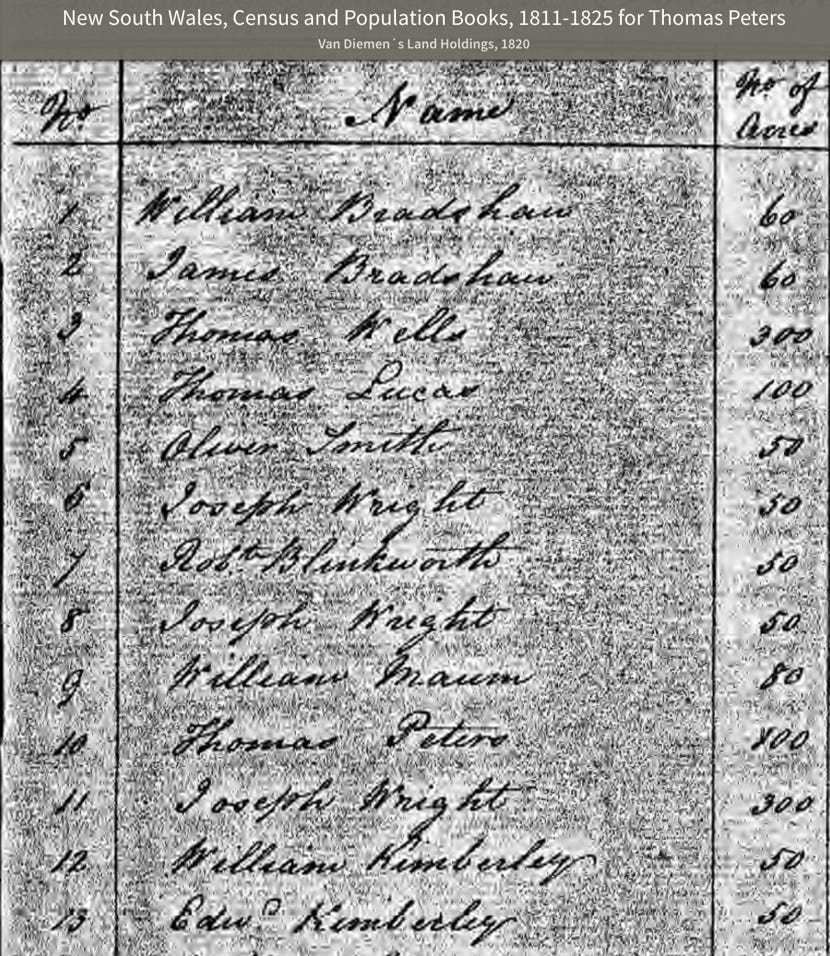 New South Wales, Census and Population Books, 1811-1825 for Thomas Peters
Van Diemen´s Land Holdings, 1820
No Name No of Acres
1 William Bradshaw 60
2 James Bradshaw 60
3 Thomas Wells 300
4 Thomas Lucas 100
5 Oliver Smith 50
6 Joseph Wright 50
7 Robt Blinkworth 50
8 Joseph Wright 50
9 William Maum 80
10 Thomas Peters
11 Joseph Wright 300
12 William Kimberley 50
13 Edwd Kimberley 50